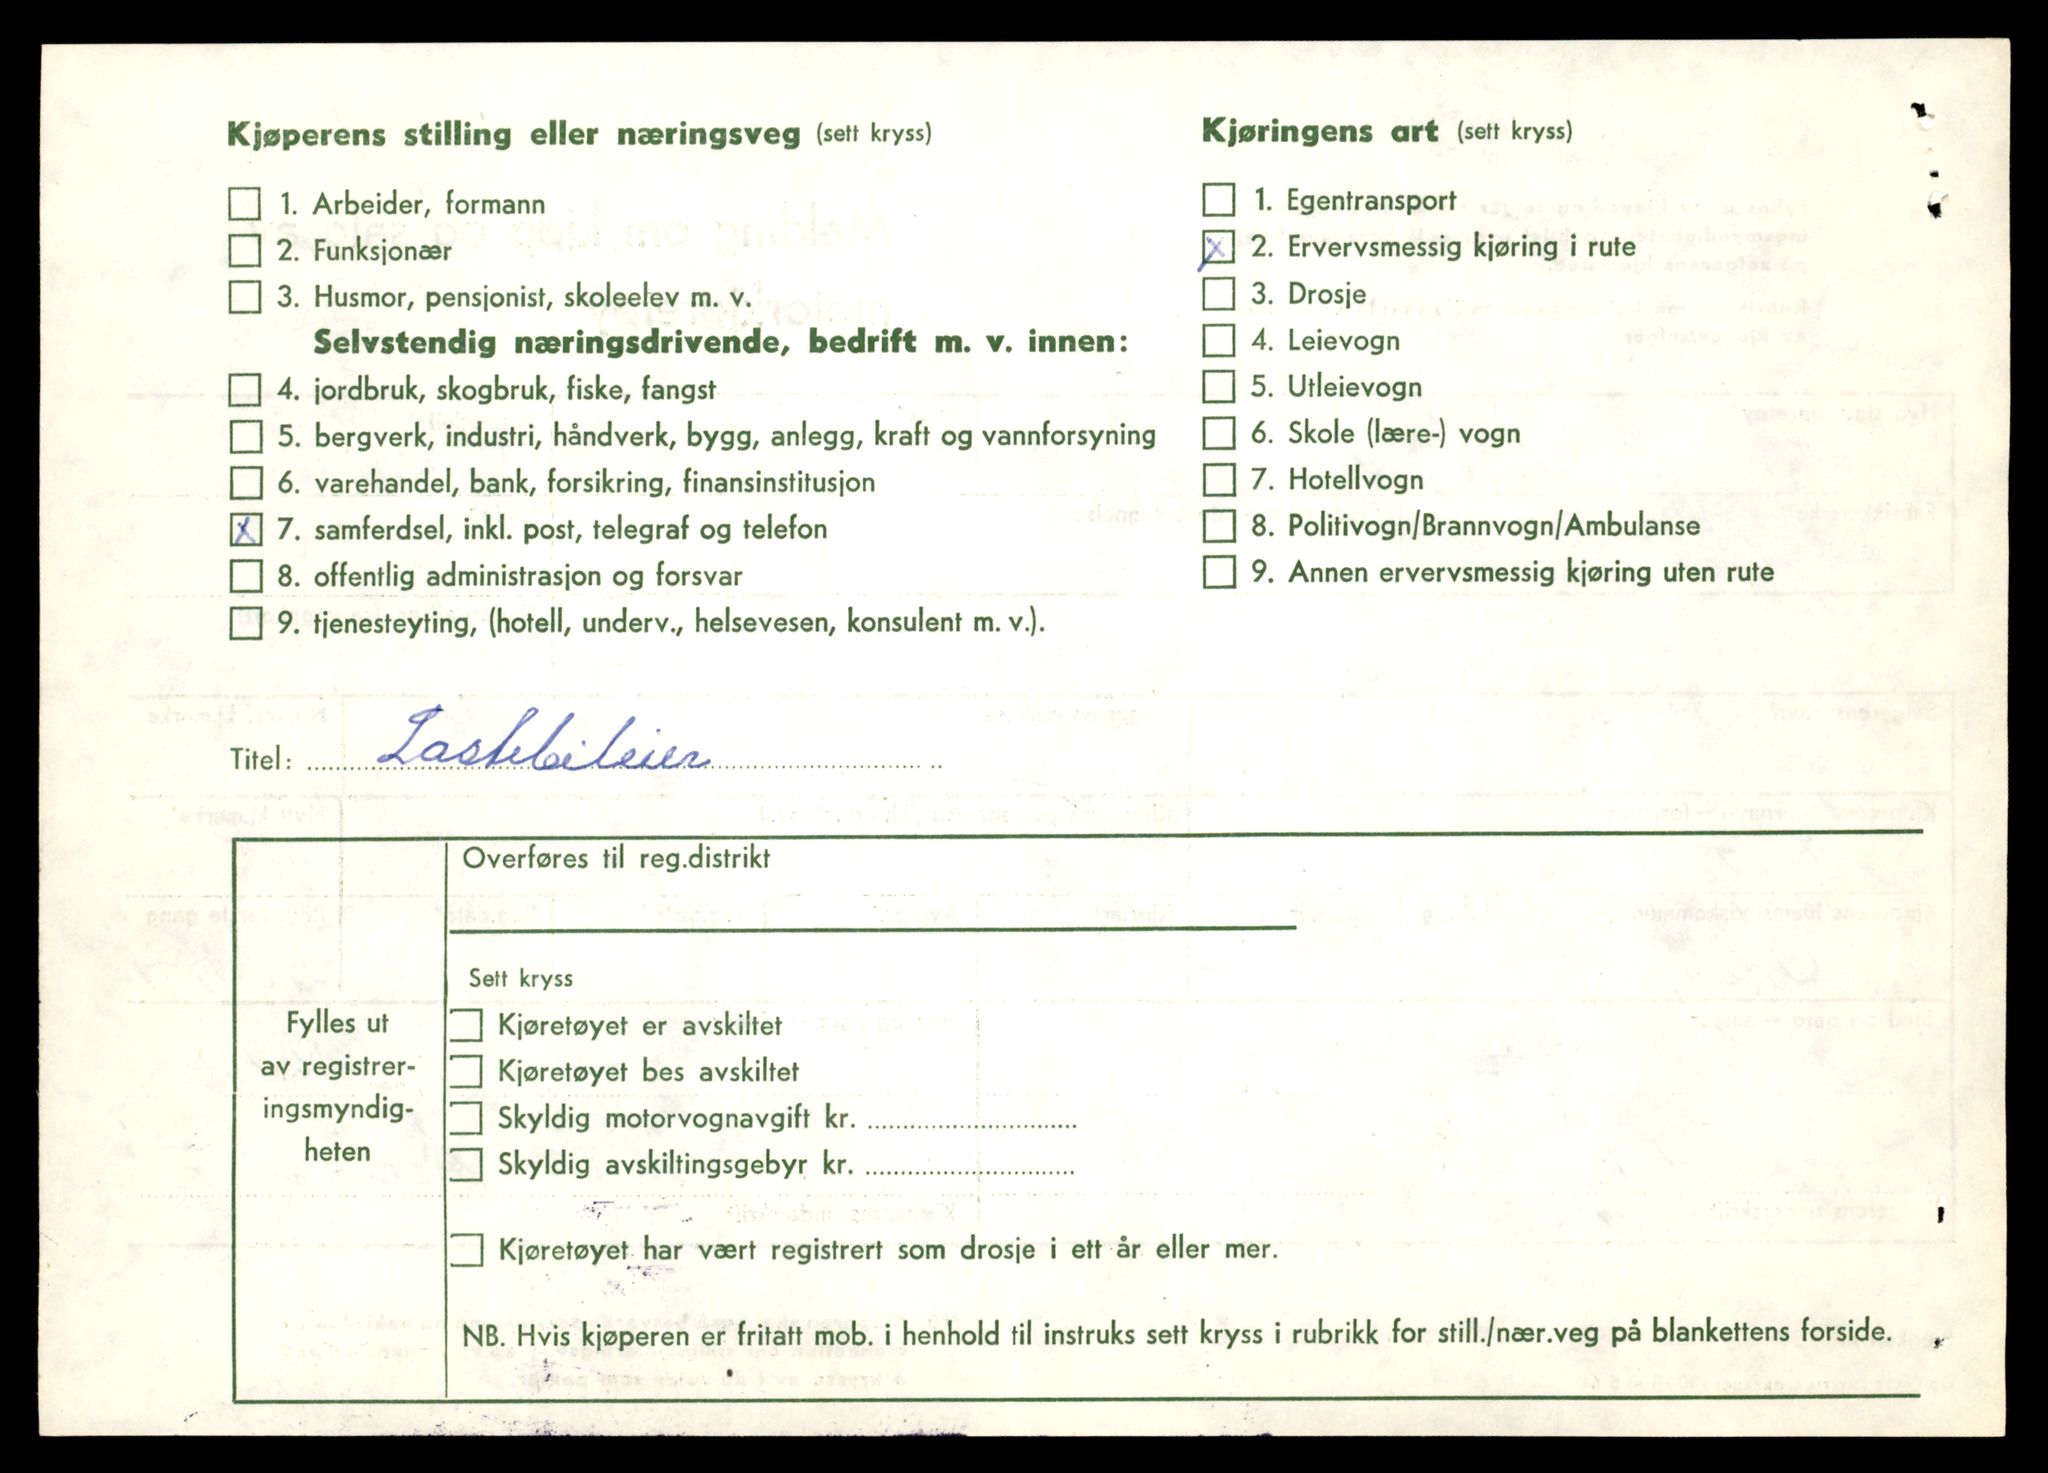 Kjøperens stilling eller næringsveg (sett kryss)
1. Arbeider, formann
2. Funksjonær
3. Husmor, pensjonist, skoleelev m. v.
Selvstendig næringsdrivende, bedrift m. v. innen:
4. jordbruk, skogbruk, fiske, fangst
5. bergverk, industri, håndverk, bygg, anlegg, kraft og vannforsyning
6. varehandel, bank, forsikring, finansinstitusjon
X 7. samferdsel, inkl. post, telegraf og telefon
8. offentlig administrasjon og forsvar
9. tjenesteyting, (hotell, underv., helsevesen, konsulent m. v.).
Kjøringens art (sett kryss)
1. Egentransport
X 2. Ervervsmessig kjøring i rute
3. Drosje
4. Leievogn
5. Utleievogn
6. Skole (lære-) vogn
7. Hotellvogn
8. Politivogn/Brannvogn/Ambulanse
9. Annen ervervsmessig kjøring uten rute
Titel: Lastebileier
Fylles ut
av registrer-
ingsmyndig-
heten
Overføres til reg.distrikt
Sett kryss
Kjøretøyet er avskiltet
Kjøretøyet bes avskiltet
Skyldig motorvognavgift kr.
Skyldig avskiltingsgebyr kr.
Kjøretøyet har vært registrert som drosje i ett år eller mer.
NB. Hvis kjøperen er fritatt mob. i henhold til instruks sett kryss i rubrikk for still./nær.veg på blankettens forside.